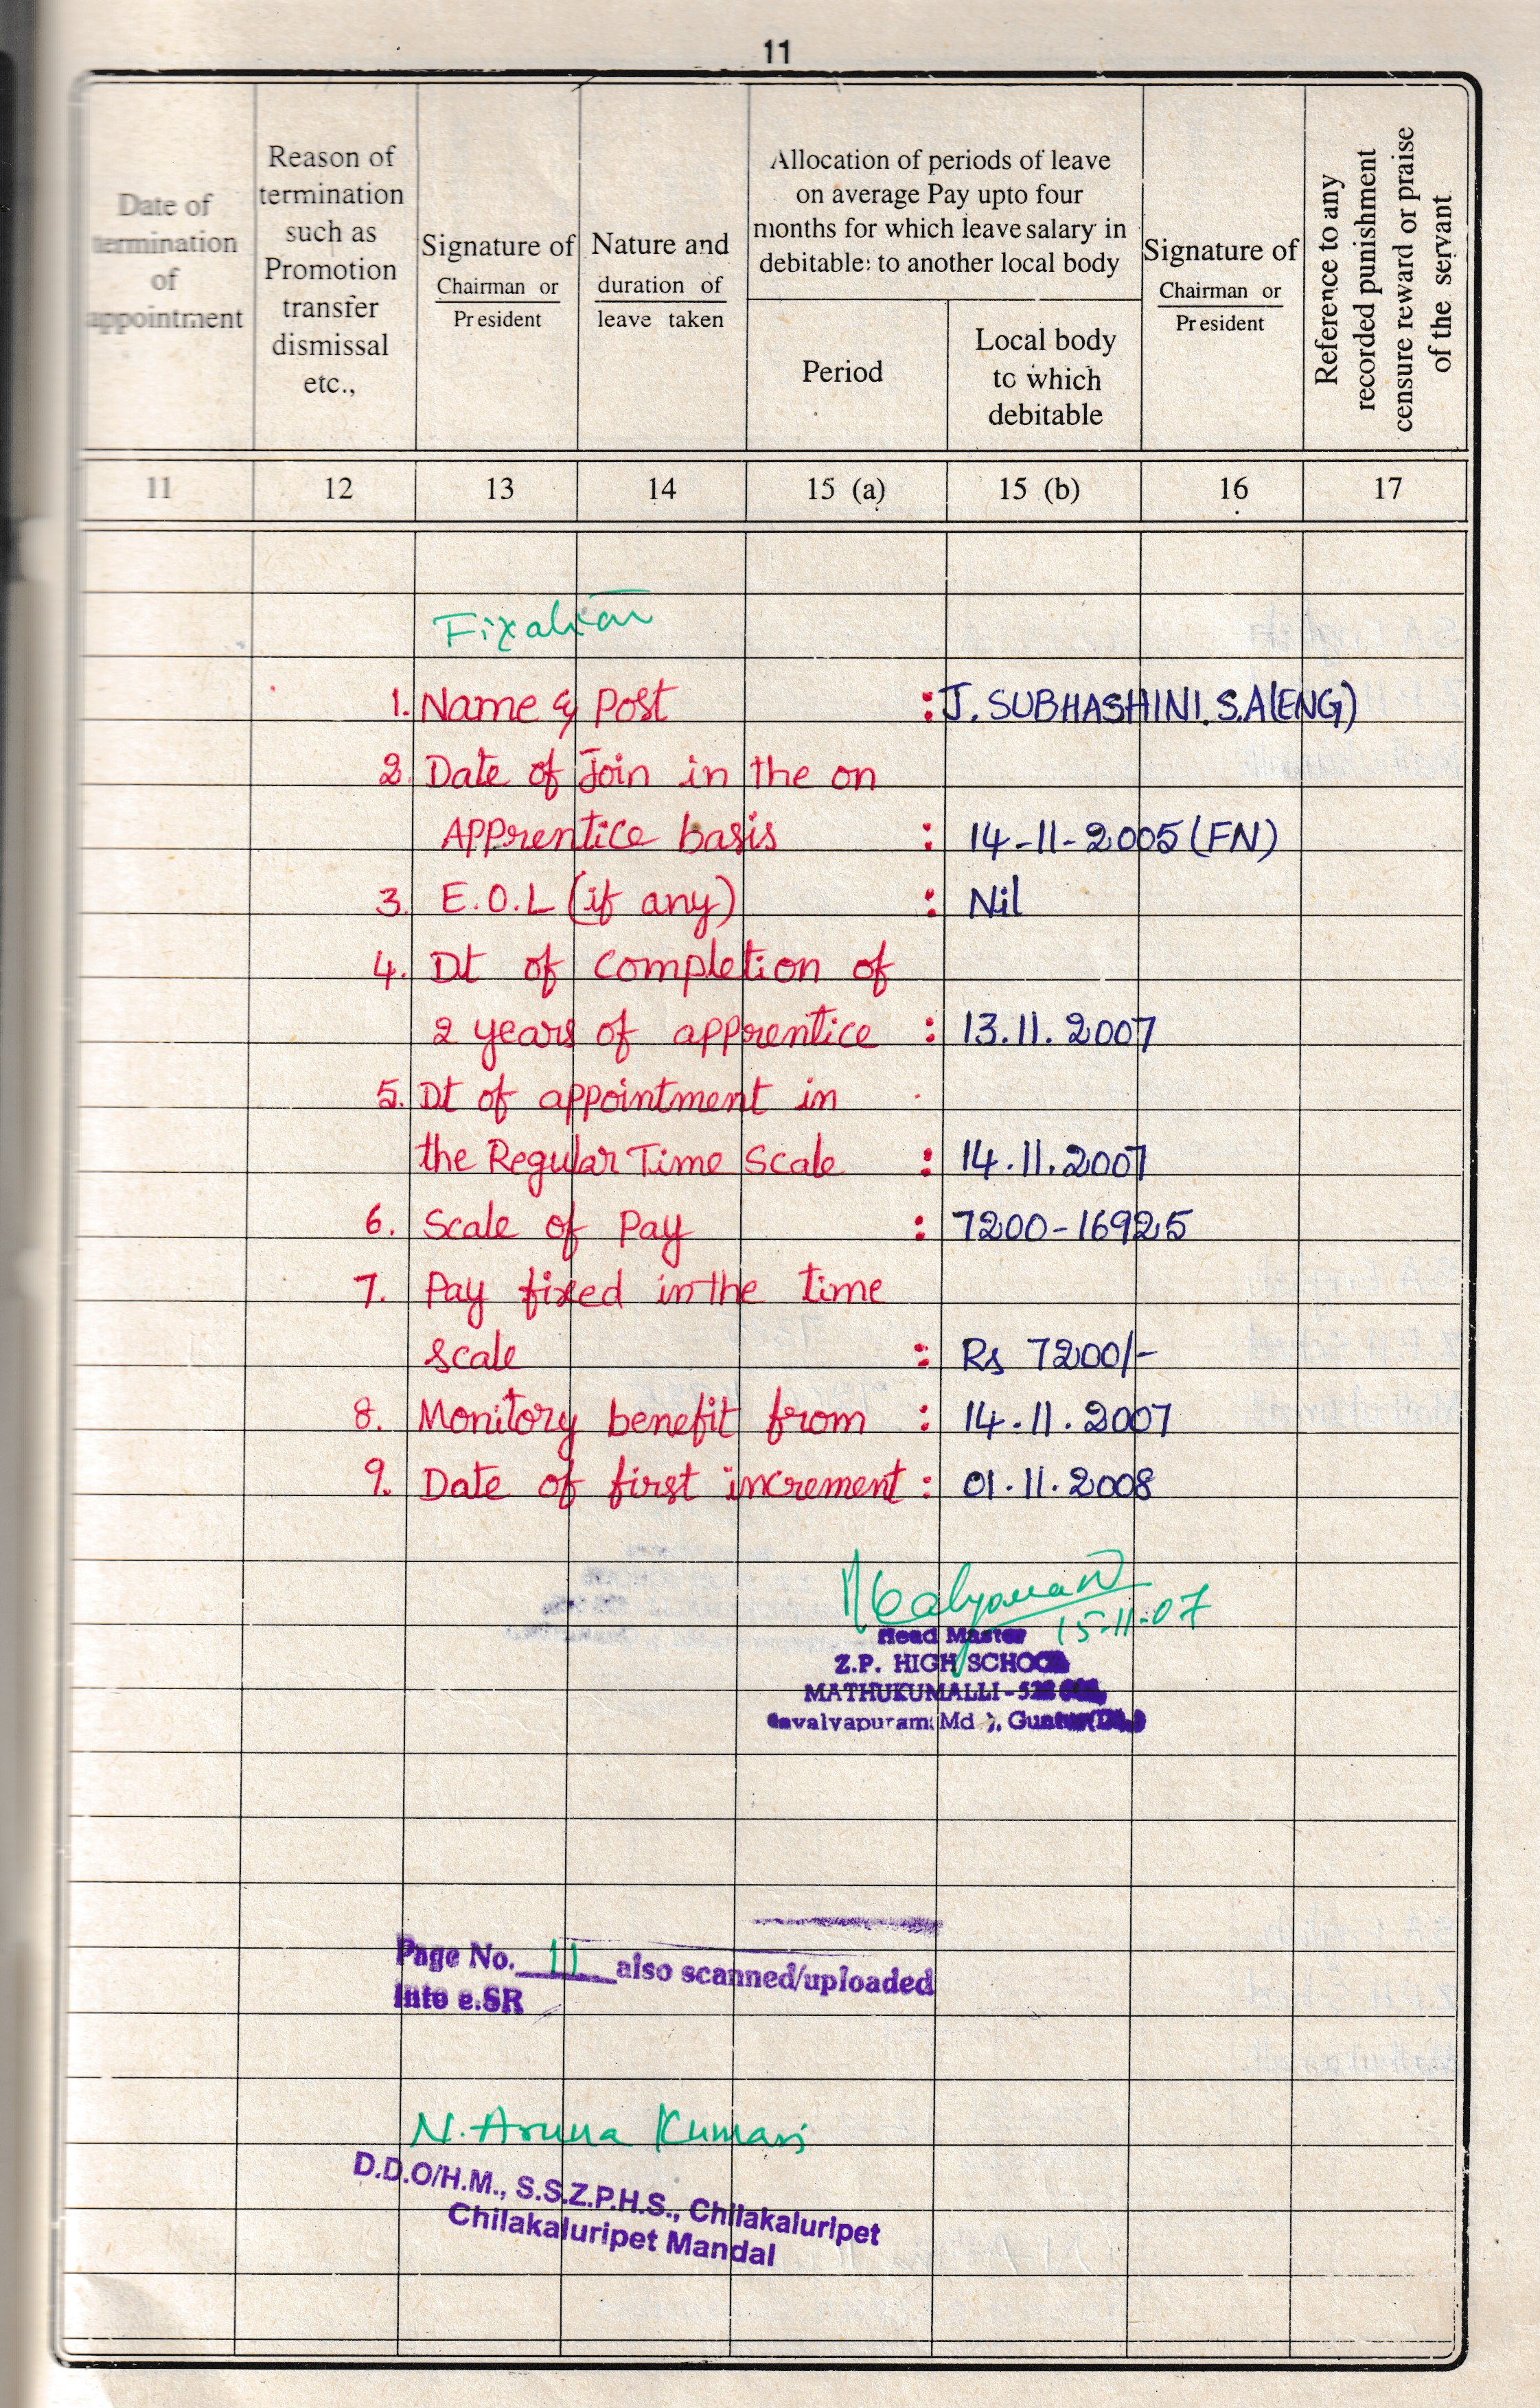 11
Date of
termination
of
appointment
Reason of
termination
such as
Promotion
transfer
dismissal
etc.,
Signature of
Chairman or
President
Nature and
duration of
leave taken
Allocation of periods of leave
on average Pay upto four
months for which leave salary in
debitable: to another local body
Period
Local body
to which
debitable
Signature of
Chairman or
President
Reference to any
recorded punishment
censure reward or praise
of the servant
11 12 13 14 15 (a) 15 (b) 16 17
Fixation
1. Name & Post : J. SUBHASHINI. S.A(ENG)
2. Date of Join in the on
Apprentice basis : 14-11-2005 (FN)
3. E.O.L (if any) : Nil
4. Dt of completion of
2 years of apprentice : 13.11.2007
5. Dt of appointment in
the Regular Time Scale : 14.11.2007
6. Scale of Pay : 7200-16925
7. Pay fixed in the time
scale : Rs 7200/-
8. Monitory benefit from : 14.11.2007
9. Date of first increment : 01.11.2008
15-11-07
Head Master
Z.P. HIGH SCHOOL
MATHUKUMALLI -
(Md ),
Page No. 11 also scanned/uploaded
Into e.SR
N. Aruna Kumari
D.D.O/H.M., S.S.Z.P.H.S., Chilakaluripet
Chilakaluripet Mandal